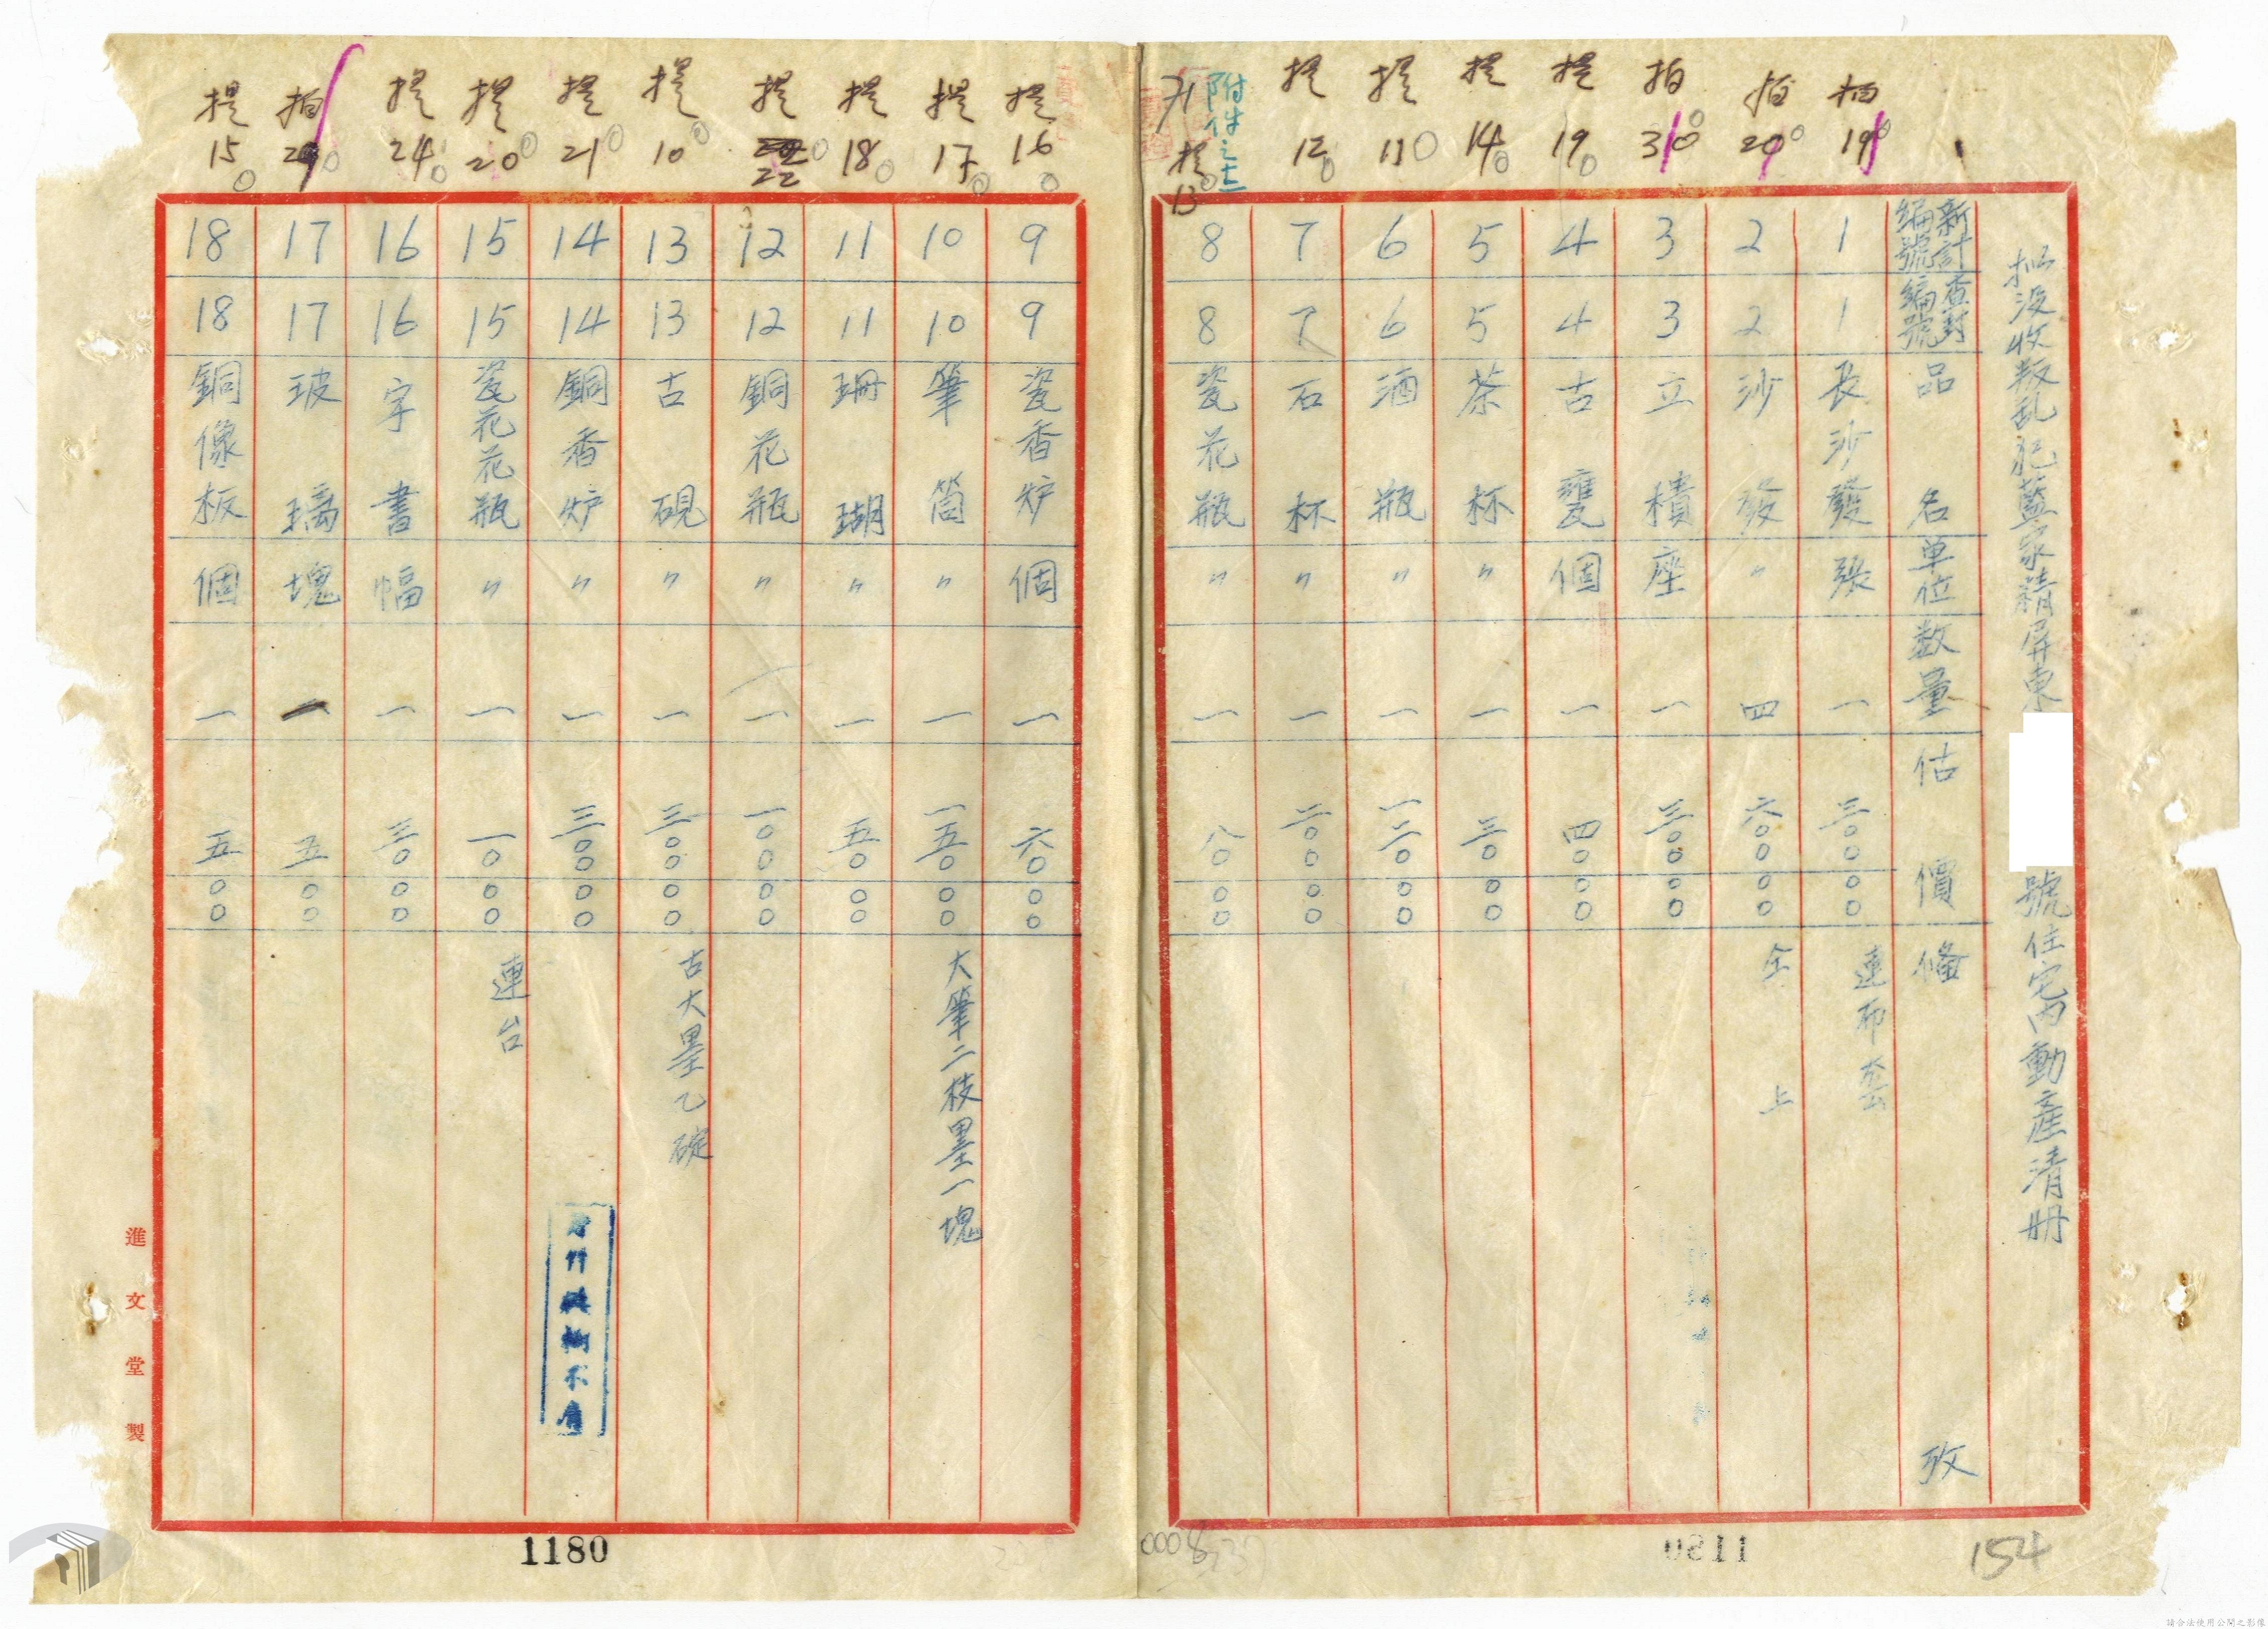 附件之七
擬没收叛乱犯藍家精屏東
號住宅內動產清册
新計編號 查封編號 品名 单位 数量 估價 備攷
拍 19 1 1 長沙發 張 一 三〇〇〇〇 連布套
拍 20 2 2 沙發 〃 四 六〇〇〇〇 仝上
拍 310 3 3 立櫃 座 一 三〇〇〇〇
提 19 4 4 古甕 個 一 四〇〇〇
提 14 5 5 茶杯 〃 一 三〇〇〇
提 11 6 6 酒瓶 〃 一 一二〇〇〇
提 12 7 7 石杯 〃 一 二〇〇〇〇
提 13 8 8 瓷花瓶 〃 一 八〇〇〇
提 16 9 9 瓷香炉 個 一 六〇〇〇
提 17 10 10 筆筒 〃 一 一五〇〇〇 大筆二枝墨一塊
提 18 11 11 珊瑚 〃 一 五〇〇〇
提 22 12 12 銅花瓶 〃 一 一〇〇〇〇
提 10 13 13 古硯 〃 一 三〇〇〇〇 古大墨乙碇
提 21 14 14 銅香炉 〃 一 三〇〇〇〇
提 20 15 15 瓷花花瓶 〃 一 一〇〇〇 連台
提 24 16 16 字書 幅 一 三〇〇〇
拍 29 17 17 玻璃 塊 一 五〇〇
提 15 18 18 銅像板 個 一 五〇〇
進文堂製
1180
0811
154
請合法使用公開之影像